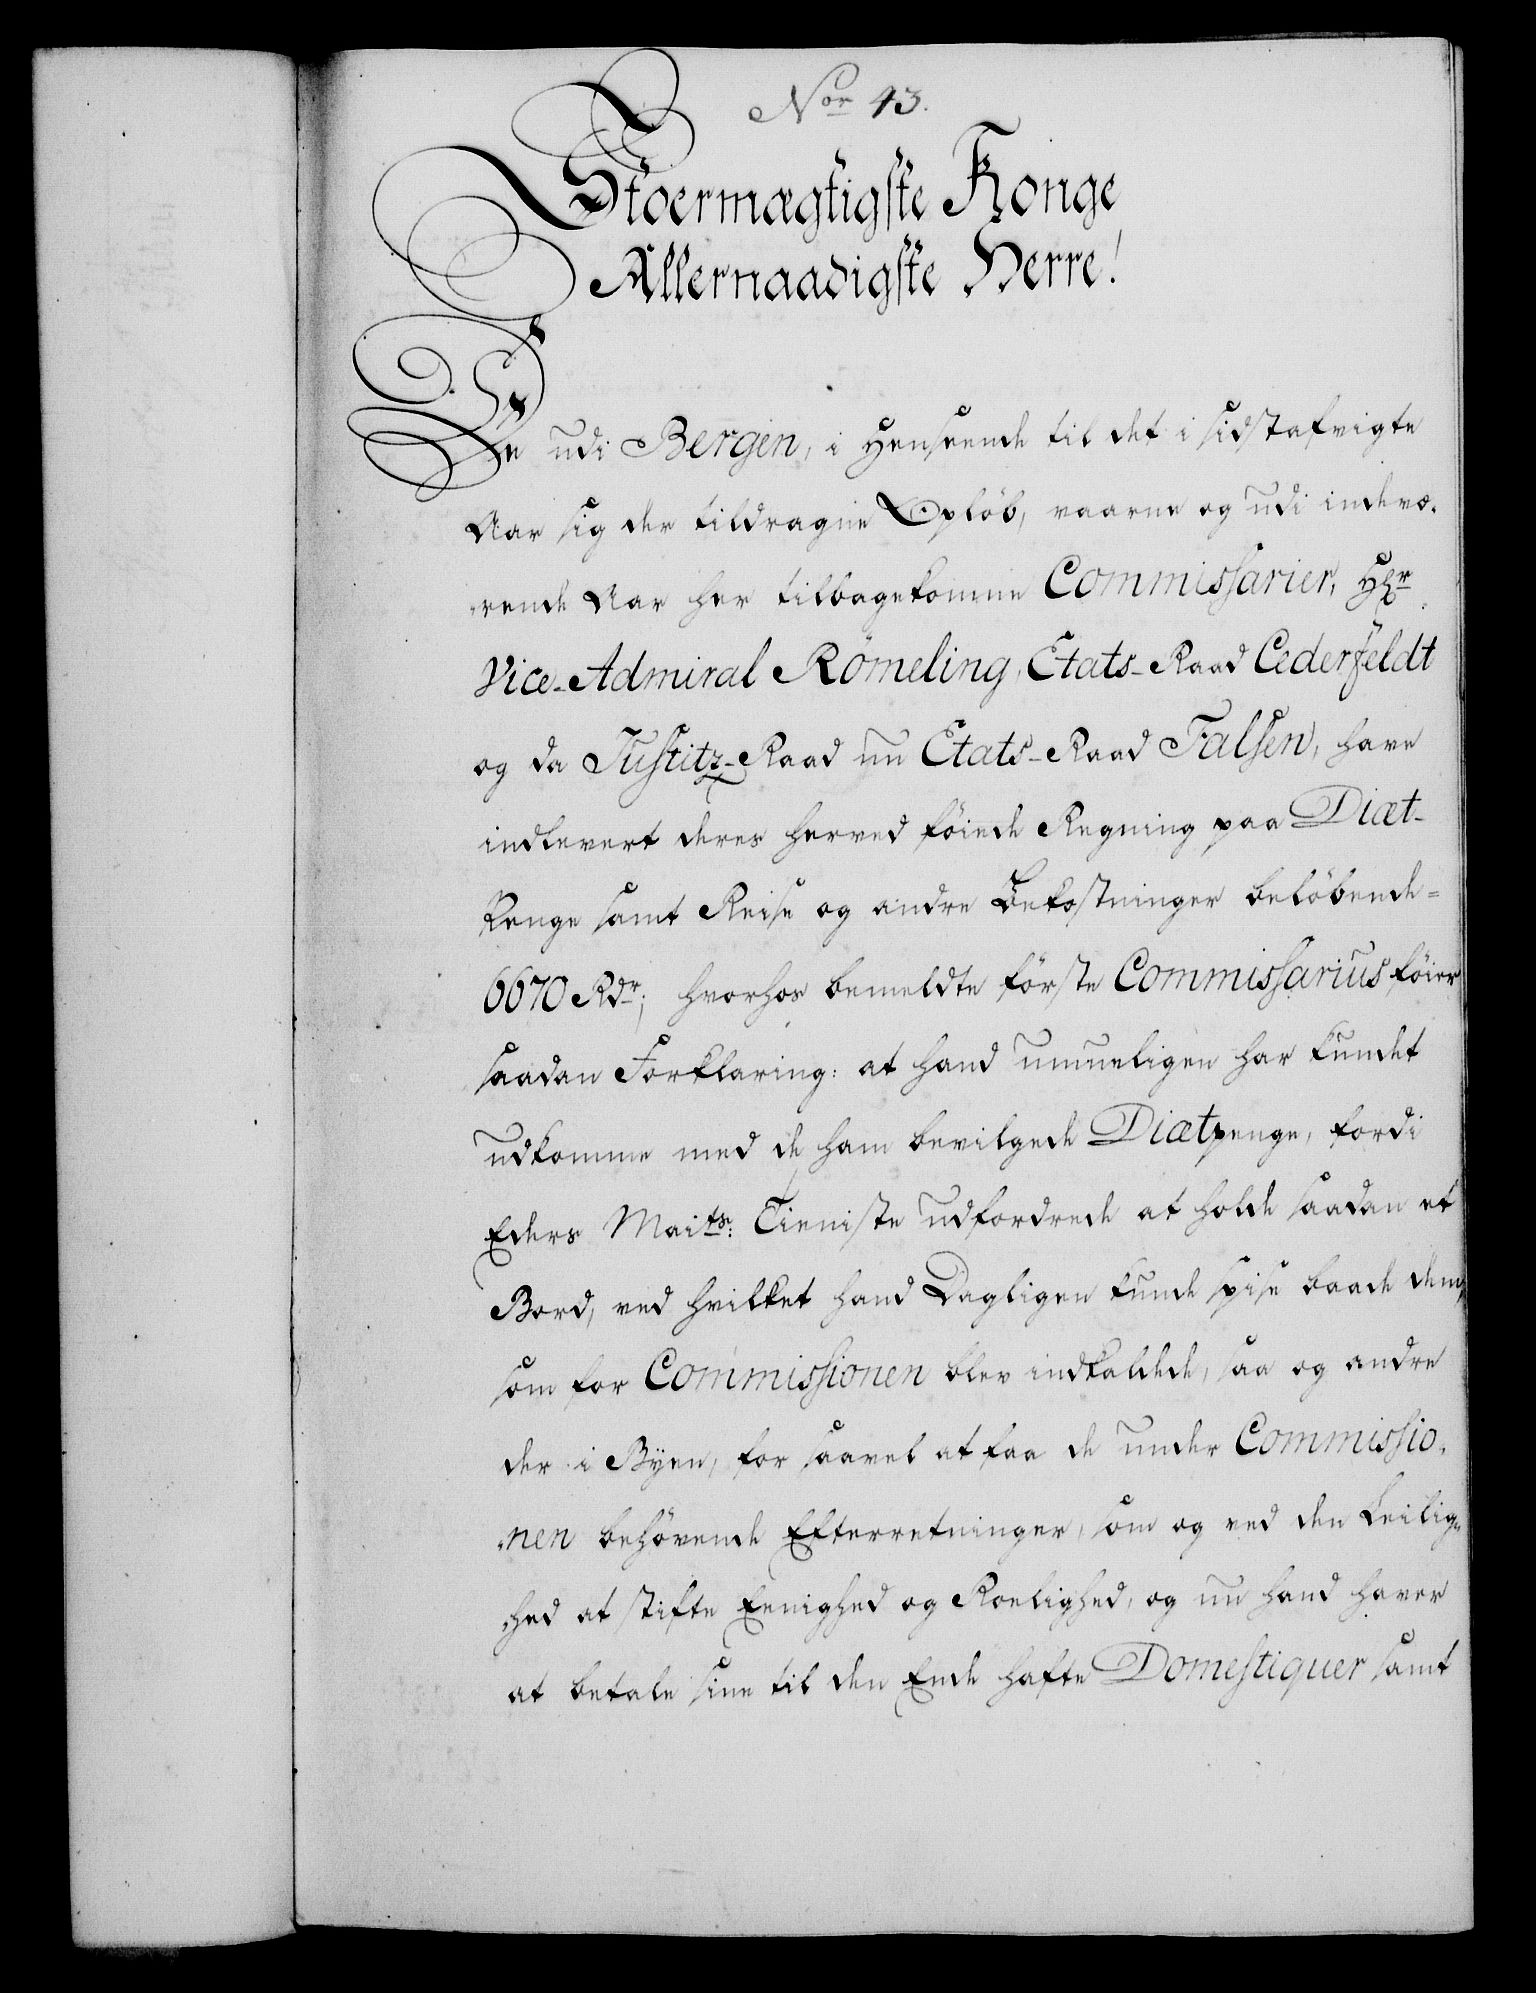 Nor 43.
Stoermægtigste Konge
Allernaadigste Herre!
De udi Bergen, i Henseende til det i sidstafvigte
Aar sig der tildragne Opløb, vaarne og udi indevæ-
rende Aar her tilbagekomne Commissarier, Hr
Vice-Admiral Rømeling, Etats-Raad Cederfeldt
og da Justitz-Raad nu Etats-Raad Falsen, have
indlevert deres herved föiede Regning paa Diæt-
Penge samt Reise og andre Bekostninger belöbende
6670 Rdr; hvorhos bemeldte förste Commissarius föier
saadan Forklaring: at hand umueligen har kundet
udkomme med de ham bevilgede Diætpenge, fordi
Eders Maits: Tieniste udfordrede at holde saadan et
Bord, ved hvilket hand Dagligen kunde spise baade dem,
som for Commissionen blev indkaldede, saa og andre
der i Byen, for saavel at faa de under Commissio-
nen behövende Efterretninger, som og ved den Leilig-
hed at stifte Eenighed og Roelighed, og nu hand haver
at betale sine til den Ende hafte Domestiquer samt